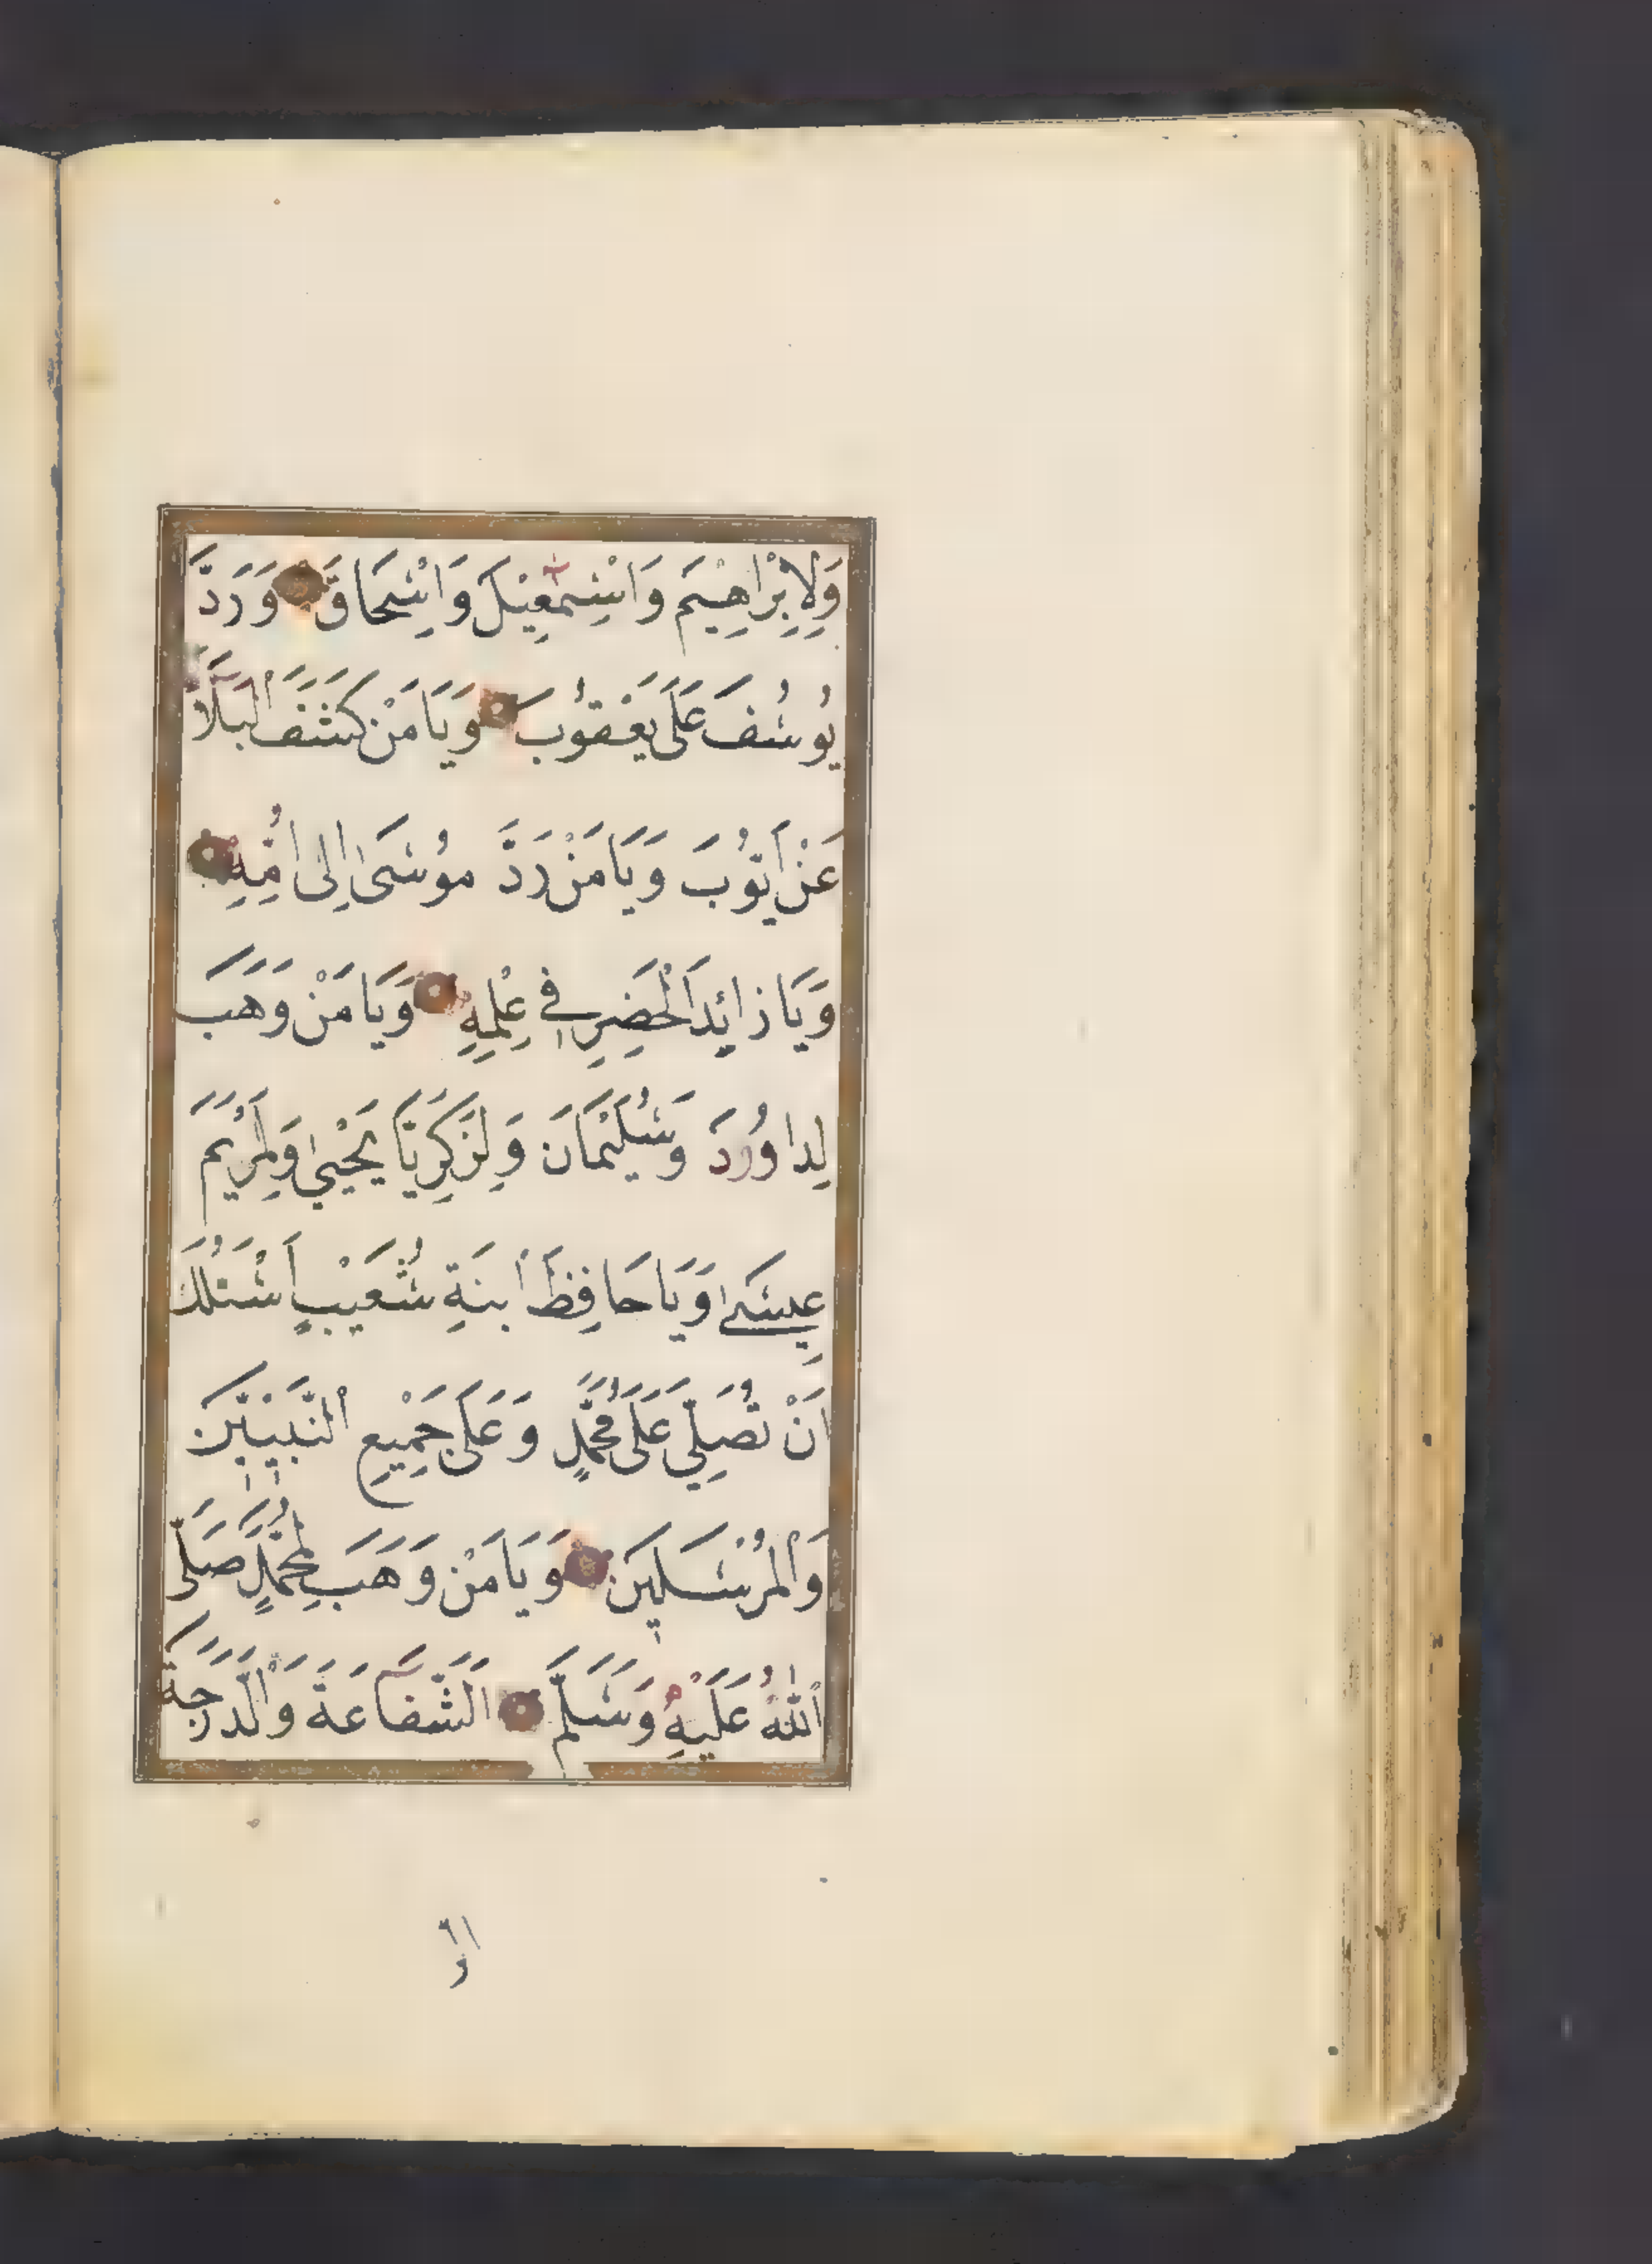 وَلِاِبْرَاهِيْمَ وَاِسْمٰعِيْلَ وَاِسْحَاقَ وَرَدَّ
يُوسُفَ عَلَى يَعْقُوبَ وَيَا مَنْ كَشَفَ الْبَلَآءَ
عَنْ اَيُّوبَ وَيَا مَنْ رَدَّ مُوسَى اِلَى اُمِّهِ
وَيَا زَائِدَ الْخَضِرِ فِي عِلْمِهِ وَيَا مَنْ وَهَبَ
لِدَاوُردَ وَسُلَيْمَانَ وَلِزَكَرِيَّا يَحْيٰي وَلِمَرْيَمَ
عِيسَى وَيَا حَافِظَ ابْنَةِ شُعَيْبٍ اَسْئَلُكَ
اَنْ تُصَلِّيَ عَلَى مُحَمَّدٍ وَعَلَى جَمِيْعِ النَّبِيِّيْنَ
وَالْمُرْسَلِيْنَ وَيَا مَنْ وَهَبَ لِمُحَمَّدٍ صَلَّى
اللّٰهُ عَلَيْهِ وَسَلَّمَ الشَّفَاعَةَ وَالدَّرَجَةَ